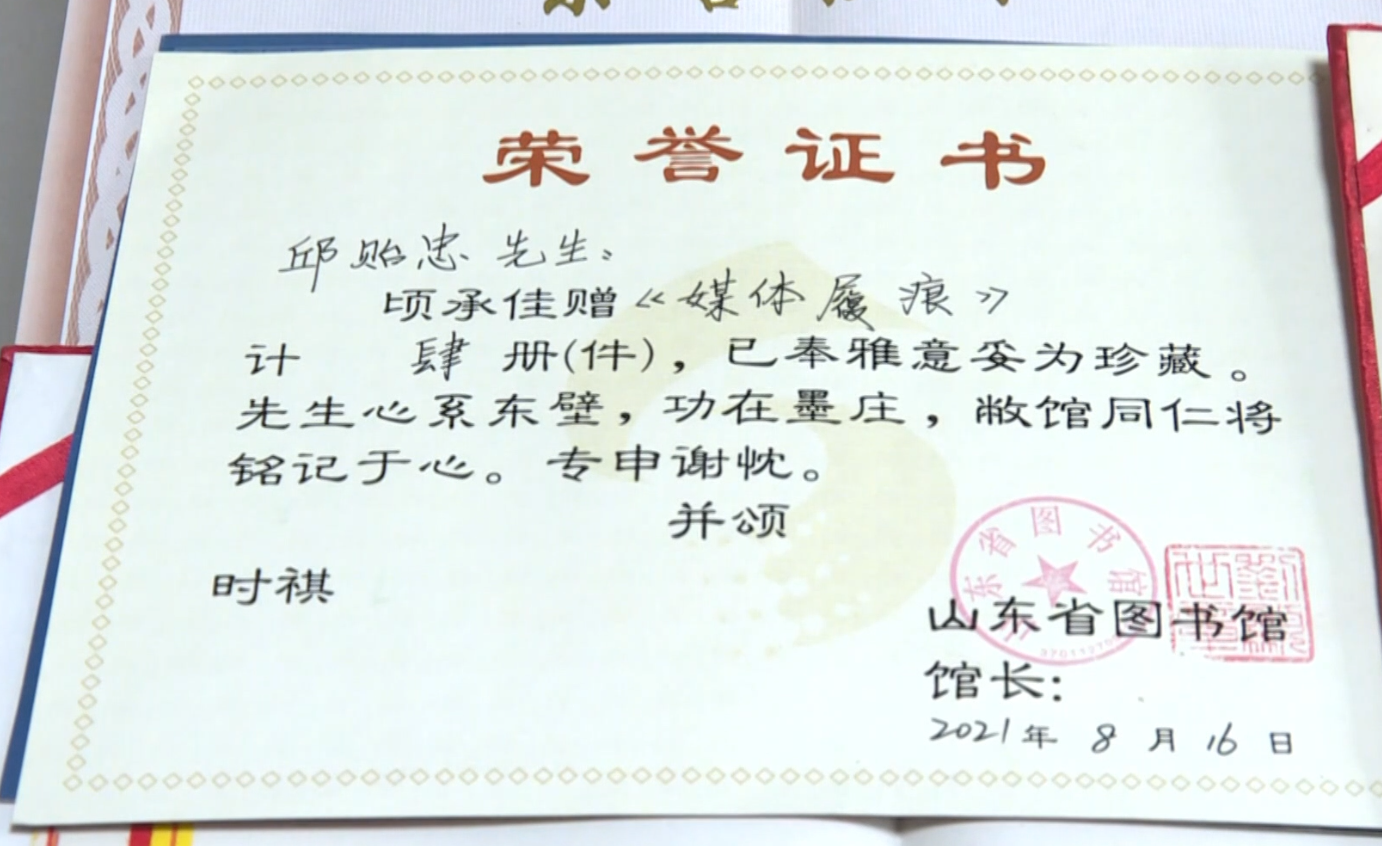 荣誉证书
邱贻忠 先生:
顷承佳赠《媒体履痕》
计 肆 册(件)，已奉雅意妥为珍藏。
先生心系东壁，功在墨庄，敝馆同仁将
铭记于心。专申谢忱。
并颂
时祺
山东省图书馆
山东省图书馆
馆长:
2021年 8 月 16 日